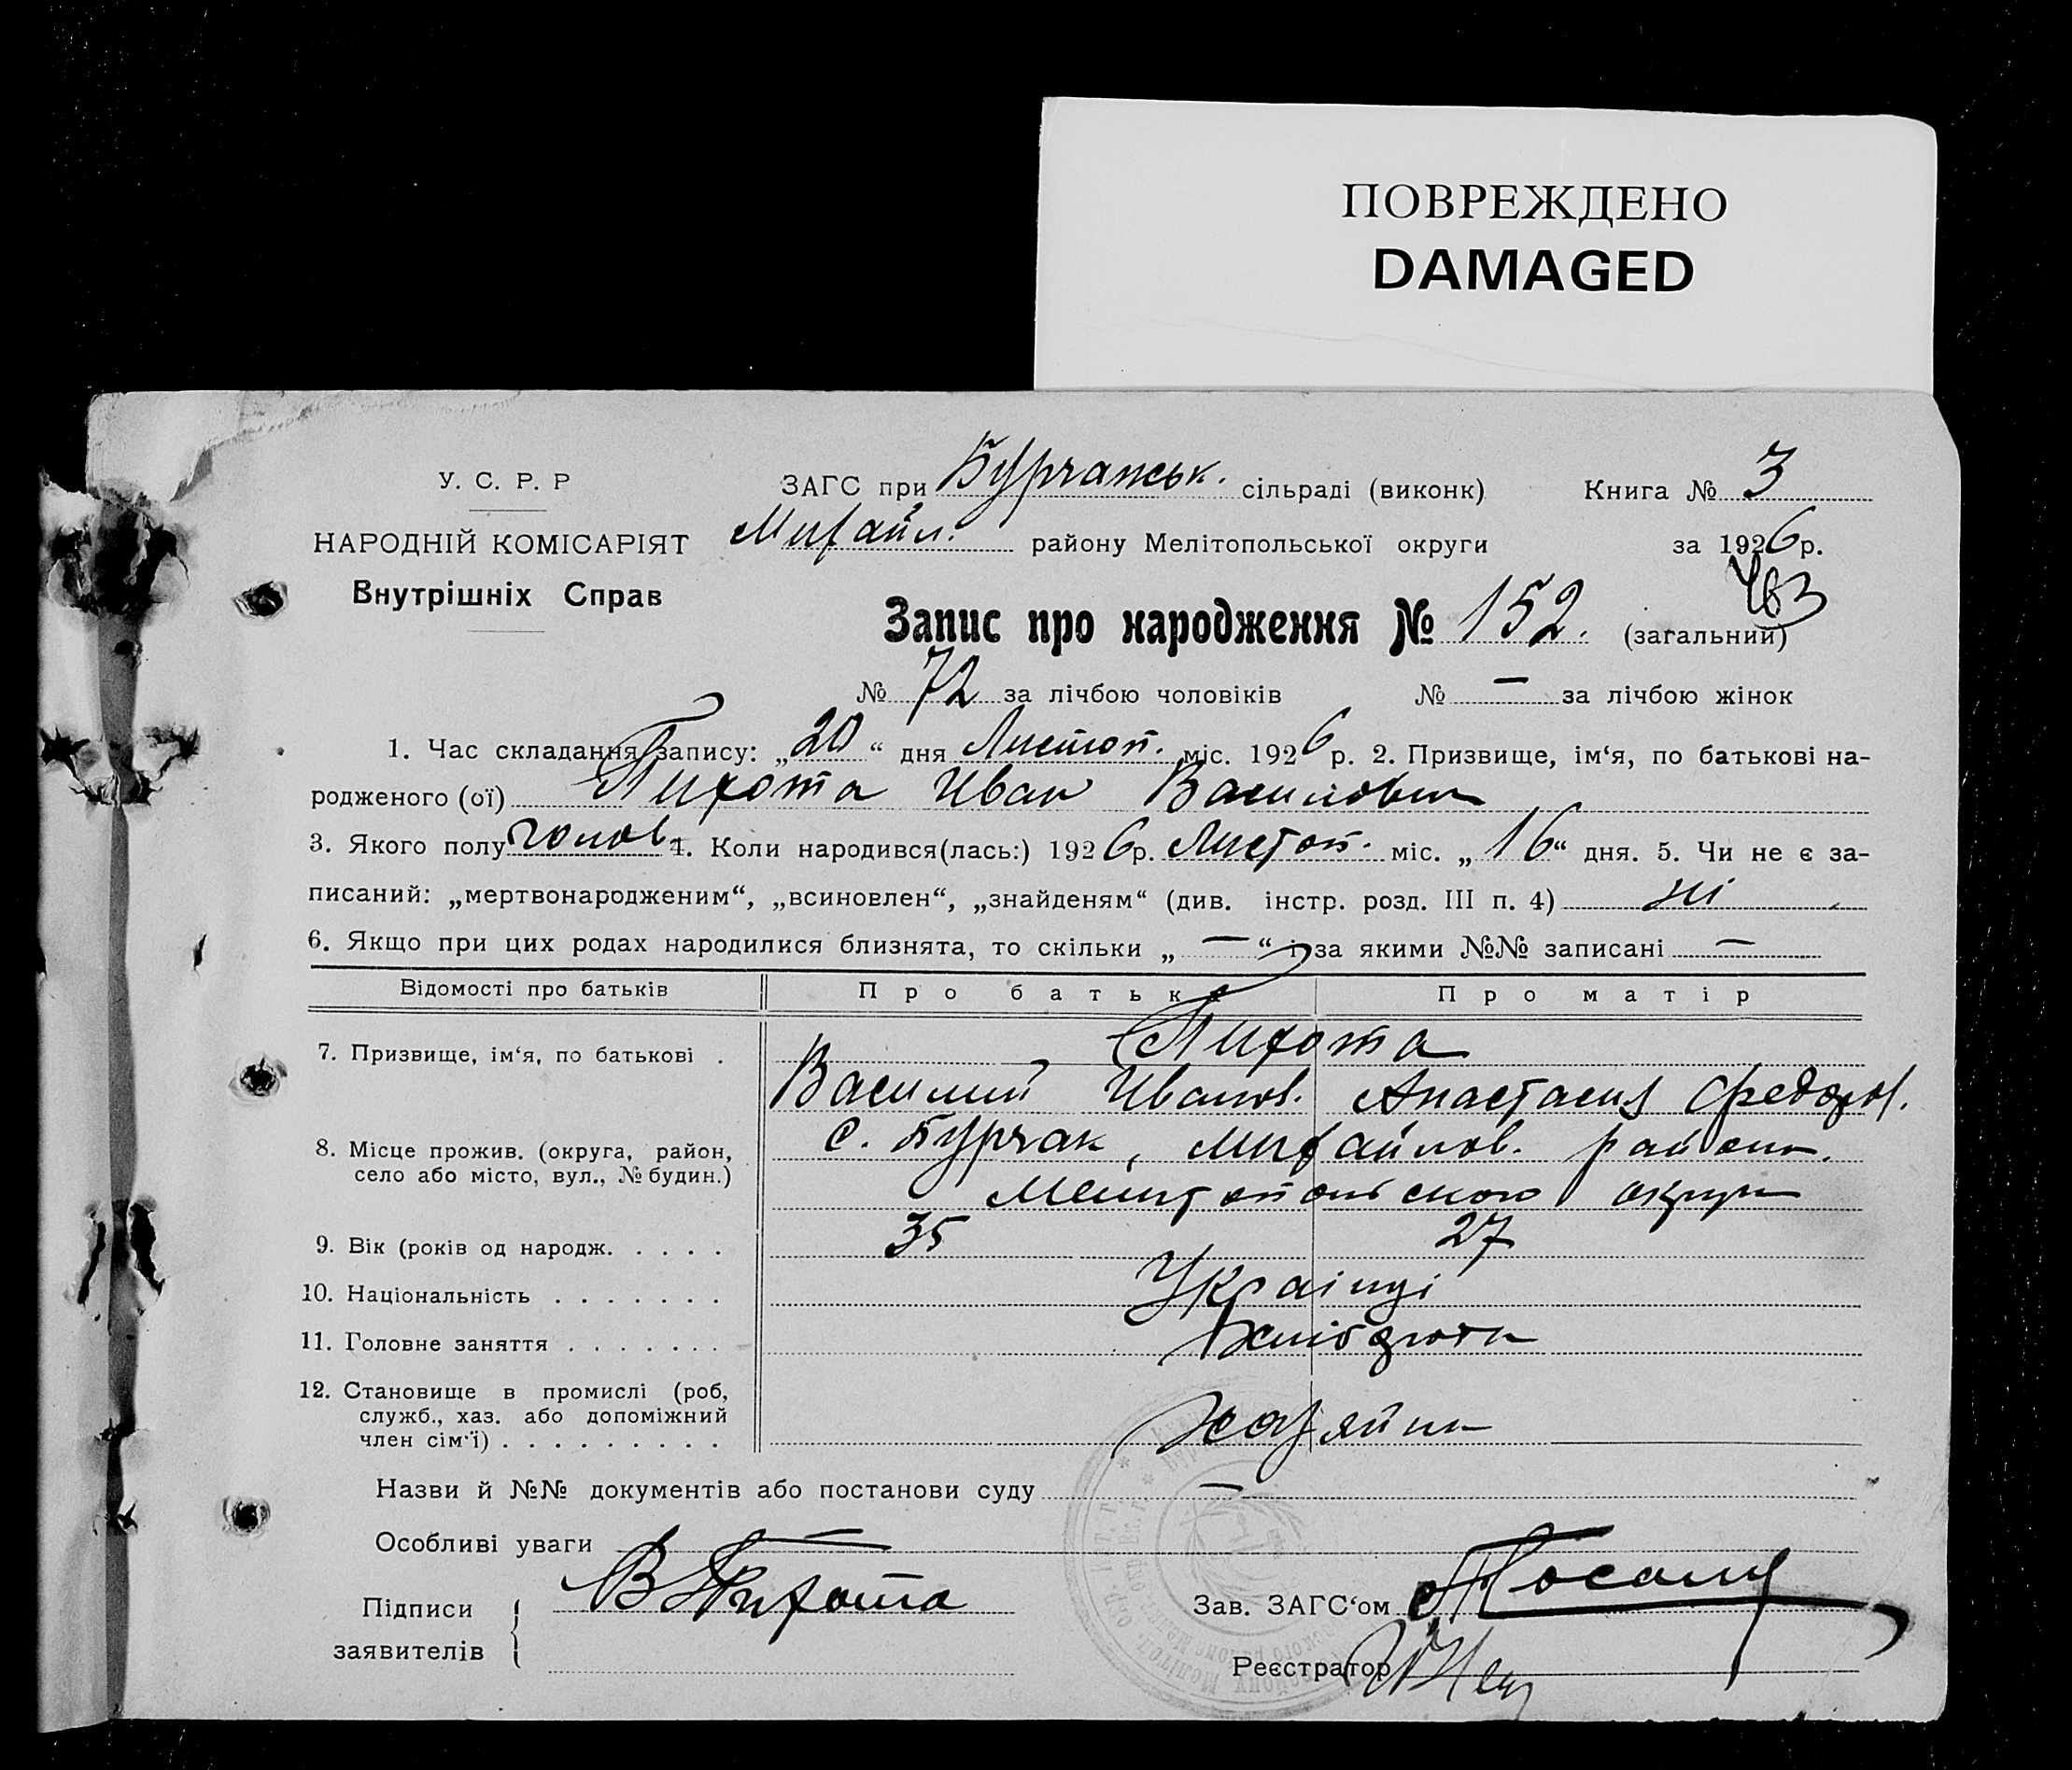 ПОВРЕЖДЕНО
DAMAGED
У. С. Р. Р
НАРОДНІЙ КОМІСАРІЯТ
Внутрішніх Справ
ЗАГС при Бурчанськ. сільраді (виконк) Книга № 3
Михайл. району Мелітопольської округи за 1926 р.
Запис про народження № 152. (загальний)
№ 72 за лічбою чоловіків № — за лічбою жінок
1. Час складання запису: „20“ дня Листоп. міс. 1926 р. 2. Призвище, ім‘я, по батькові на-
родженого (ої) Пихота Иван Василович
3. Якого полу чолов. 4. Коли народився(лась:) 1926 р. Листоп. міс. „16“ дня. 5. Чи не є за-
писаний: „мертвонародженим“, „всиновлен“, „знайденям“ (див. інстр. розд. III п. 4) ні
6. Якщо при цих родах народилися близнята, то скільки „—“ і за якими №№ записані —
Відомості про батьків Про батька Про матір
7. Призвище, ім‘я, по батькові . Пихота
Василий Иванов. Анастасия Федоров.
8. Місце прожив. (округа, район, село або місто, вул., № будин.) с. Бурчак, Михайлов. району.
Мелитопольского округи
9. Вік (років од народж. . . . . 35 27
10. Національність . . . . . . . Українці
11. Головне заняття . . . . . . . Хлібороби
12. Становище в промислі (роб,
служб., хаз. або допоміжний
член сім‘ї) . . . . . . . . . Хазяїни
Назви й №№ документів або постанови суду —
Особливі уваги —
Підписи заявителів В Пихота
Зав. ЗАГС‘ом
Реєстратор